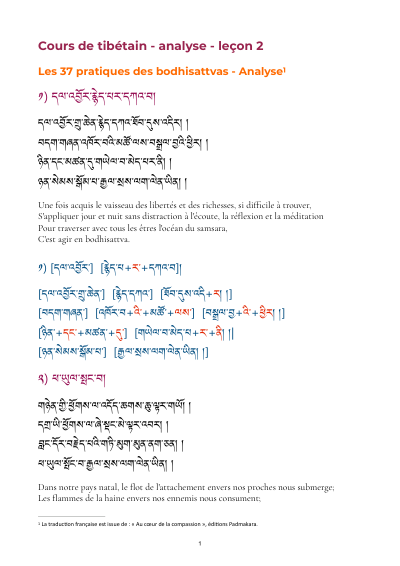 Cours de tibétain - analyse - leçon 2
Les 37 pratiques des bodhisattvas - Analyse¹
༡) དལ་འབྱོར་རྙེད་པར་དཀའ་བ།
དལ་འབྱོར་གྲུ་ཆེན་རྙེད་དཀའ་ཐོབ་དུས་འདིར། །
བདག་གཞན་འཁོར་བའི་མཚོ་ལས་བསྒྲལ་བྱའི་ཕྱིར། །
ཉིན་དང་མཚན་དུ་གཡེལ་བ་མེད་པར་ནི། །
ཉན་སེམས་སྒོམ་པ་རྒྱལ་སྲས་ལག་ལེན་ཡིན། །
Une fois acquis le vaisseau des libertés et des richesses, si difficile à trouver,
S'appliquer jour et nuit sans distraction à l'écoute, la réflexion et la méditation
Pour traverser avec tous les êtres l'océan du samsara,
C'est agir en bodhisattva.
༡) [དལ་འབྱོར་] [རྙེད་པ་+ར་+དཀའ་བ]།
[དལ་འབྱོར་གྲུ་ཆེན་] [རྙེད་དཀའ་] [ཐོབ་དུས་འདི+ར། །]
[བདག་གཞན་] [འཁོར་བ+འི་+མཚོ་+ལས་] [བསྒྲལ་བྱ+འི་+ཕྱིར། །]
[ཉིན་+དང་+མཚན་+དུ་] [གཡེལ་བ་མེད་པ+ར་+ནི། །]
[ཉན་སེམས་སྒོམ་པ་] [རྒྱལ་སྲས་ལག་ལེན་ཡིན། །]
༢) ཕ་ཡུལ་སྤང་བ།
གཉེན་གྱི་ཕྱོགས་ལ་འདོད་ཆགས་ཆུ་ལྟར་གཡོ། །
དགྲ་ཡི་ཕྱོགས་ལ་ཞེ་སྡང་མེ་ལྟར་འབར། །
བླང་དོར་བརྗེད་པའི་གཏི་མུག་མུན་ནག་ཅན། །
ཕ་ཡུལ་སྤོང་བ་རྒྱལ་སྲས་ལག་ལེན་ཡིན། །
Dans notre pays natal, le flot de l'attachement envers nos proches nous submerge;
Les flammes de la haine envers nos ennemis nous consument;
¹ La traduction française est issue de : « Au cœur de la compassion », éditions Padmakara.
1